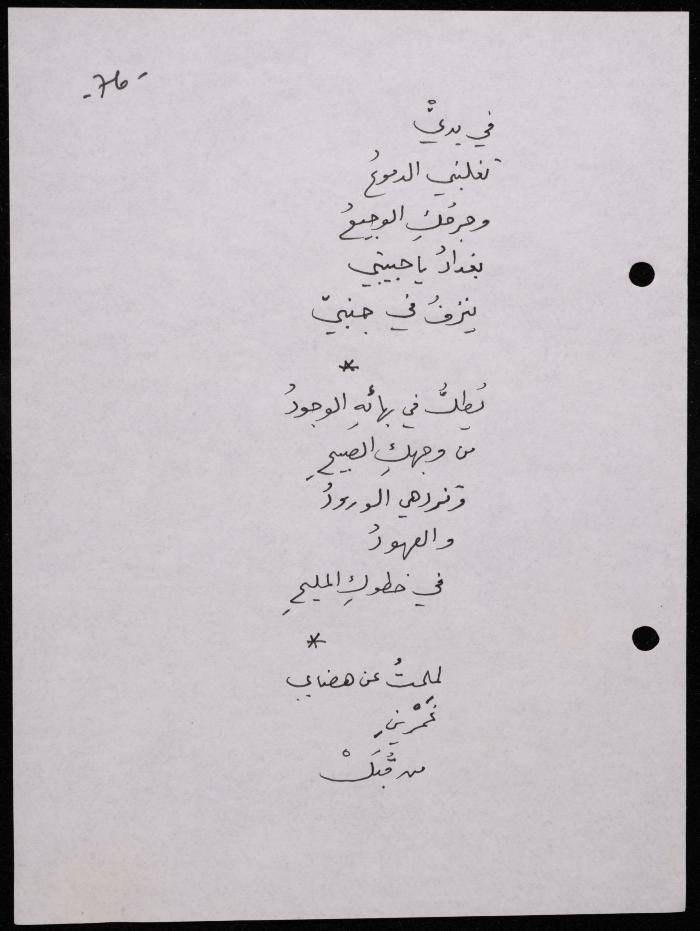 -76-
في يديّْ
تغلبني الدموعُ
وجرحُكِ الوجيعُ
بغدادُ يا حبيبتي
ينزفُ في جنبيّ
*
يُطلُّ في بهائهِ الوجودُ
من وجهكِ الصبيحِ
وتزدهي الورودُ
والعهودُ
في خطوكِ المليحِ
*
لملمتُ عن هضابي
من